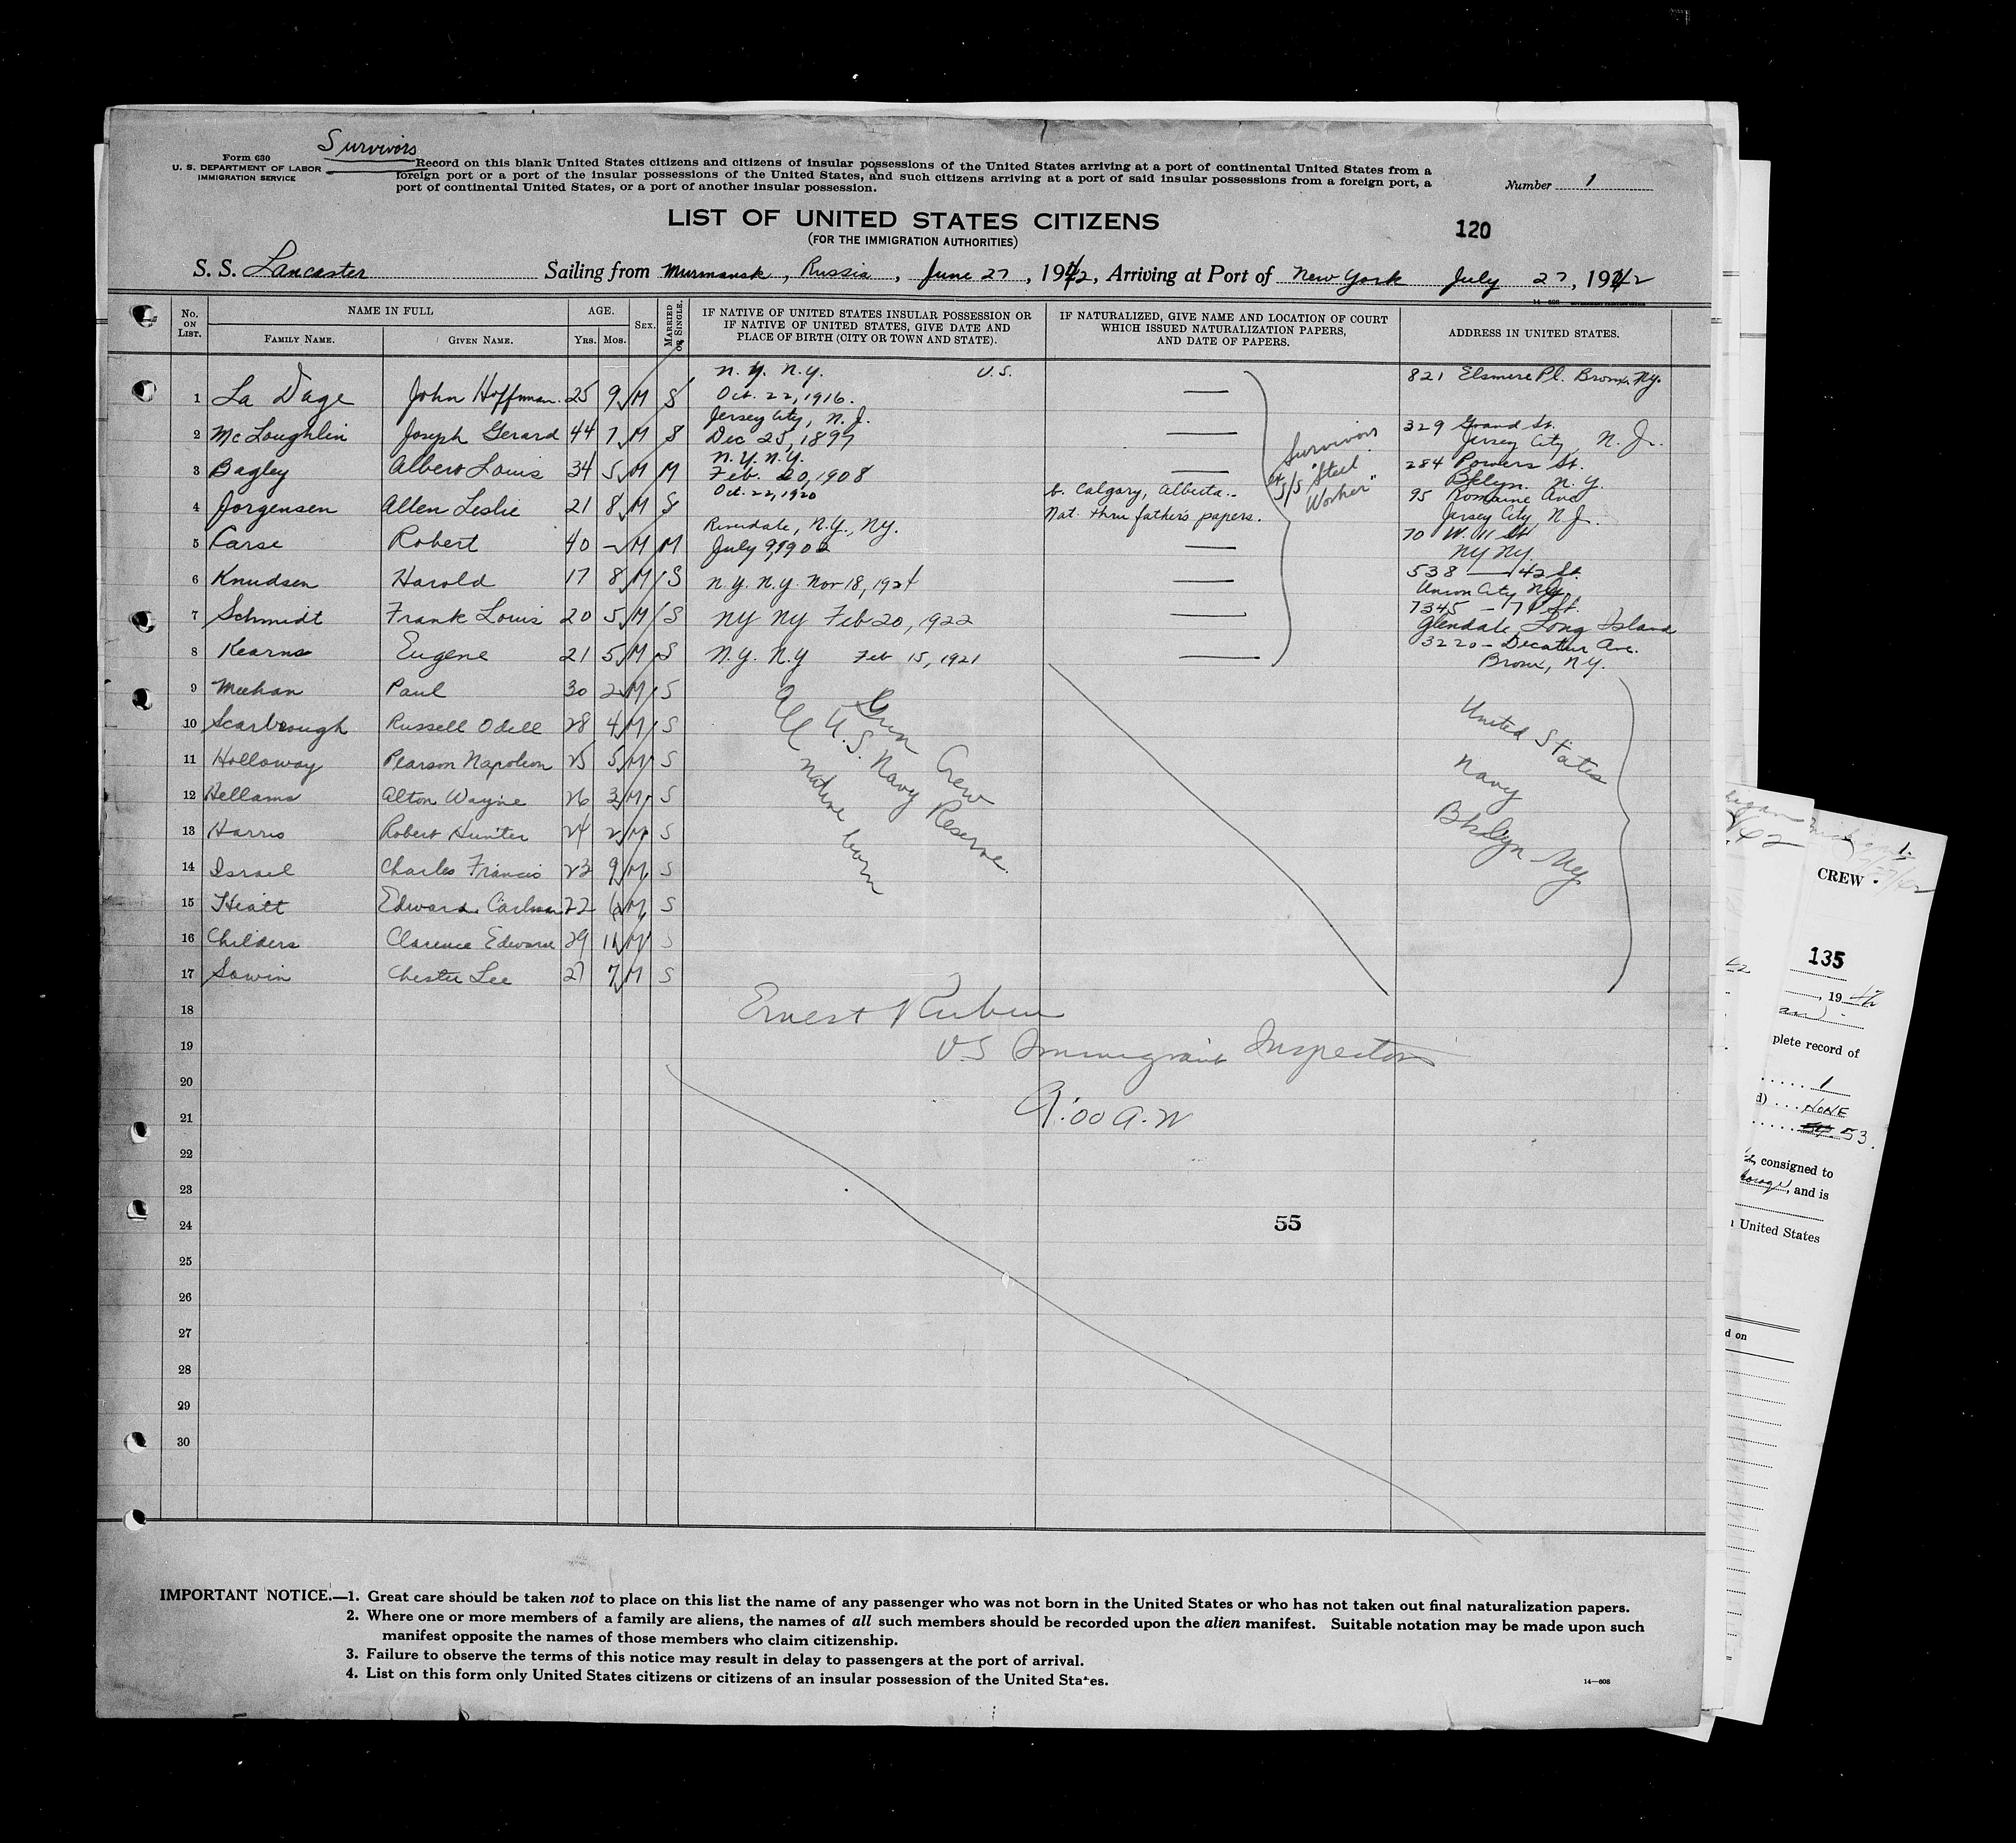 Survivors
Form 630
U. S. DEPARTMENT OF LABOR
IMMIGRATION SERVICE
Record on this blank United States citizens and citizens of insular possessions of the United States arriving at a port of continental United States from a
foreign port or a port of the insular possessions of the United States, and such citizens arriving at a port of said insular possessions from a foreign port, a
port of continental United States, or a port of another insular possession.
Number 1
LIST OF UNITED STATES CITIZENS
(FOR THE IMMIGRATION AUTHORITIES)
120
S. S. Lancaster Sailing from Murmansk, Russia, June 27, 1942, Arriving at Port of New York July 27, 1942
14-608
No. ON LIST.
NAME IN FULL
FAMILY NAME.
GIVEN NAME.
AGE.
Yrs. Mos.
SEX.
MARRIED OR SINGLE.
IF NATIVE OF UNITED STATES INSULAR POSSESSION OR
IF NATIVE OF UNITED STATES, GIVE DATE AND
PLACE OF BIRTH (CITY OR TOWN AND STATE).
IF NATURALIZED, GIVE NAME AND LOCATION OF COURT
WHICH ISSUED NATURALIZATION PAPERS,
AND DATE OF PAPERS.
ADDRESS IN UNITED STATES.
1 La Dage John Hoffman 25 9 M S N.Y. N.Y. U.S. Oct. 22, 1916. — 821 Elsmere Pl. Bronx, NY.
2 McLoughlin Joseph Gerard 44 7 M S Jersey City, N.J. Dec 25, 1897 — 329 Grand St. Jersey City, N.J.
3 Bagley Albert Louis 34 5 M M N.Y. N.Y. Feb. 20, 1908 — 284 Powers St. Bklyn. N.Y.
4 Jorgensen Allen Leslie 21 8 M S Oct. 22, 1920 b. Calgary, Alberta. Nat. thru father's papers. 95 Romaine Ave Jersey City, N.J.
5 Carse Robert 40 - M M Riverdale, N.Y., NY. July 9, 1902 — 70 W. 11 St NY NY.
6 Knudsen Harold 17 8 M S N.Y. N.Y. Nov 18, 1924 — 538 — 42 St. Union City NJ.
7 Schmidt Frank Louis 20 5 M S NY NY Feb 20, 1922 — 7345 - 71 St. Glendale Long Island
8 Kearns Eugene 21 5 M S N.Y. N.Y Feb 15, 1921 — 3220 - Decatur Ave. Bronx, N.Y.
Survivors
ex S/S "Steel
Worker"
9 Meehan Paul 30 2 M S
10 Scarbrough Russell Odell 28 4 M S
11 Holloway Pearson Napoleon 25 5 M S
12 Hellams Alton Wayne 26 3 M S
13 Harris Robert Hunter 24 2 M S
14 Israel Charles Francis 23 9 M S
15 Hiatt Edward 22 6 M S
16 Childers Clarence Edward 29 11 M S
17 Sowin Chester Lee 27 7 M S
Gun Crew
All U.S. Navy Reserve
native born
United States
Navy
Bklyn NY
18
Ernest Rubin
19
US Immigrant Inspector
20
21
9:00 A.M
22
23
24
55
25
26
27
28
29
30
IMPORTANT NOTICE.—1. Great care should be taken not to place on this list the name of any passenger who was not born in the United States or who has not taken out final naturalization papers.
2. Where one or more members of a family are aliens, the names of all such members should be recorded upon the alien manifest. Suitable notation may be made upon such
manifest opposite the names of those members who claim citizenship.
3. Failure to observe the terms of this notice may result in delay to passengers at the port of arrival.
4. List on this form only United States citizens or citizens of an insular possession of the United States.
14—608
CREW
135
, 1942
plete record of
1
d) NONE
53
consigned to
, and is
United States
d on